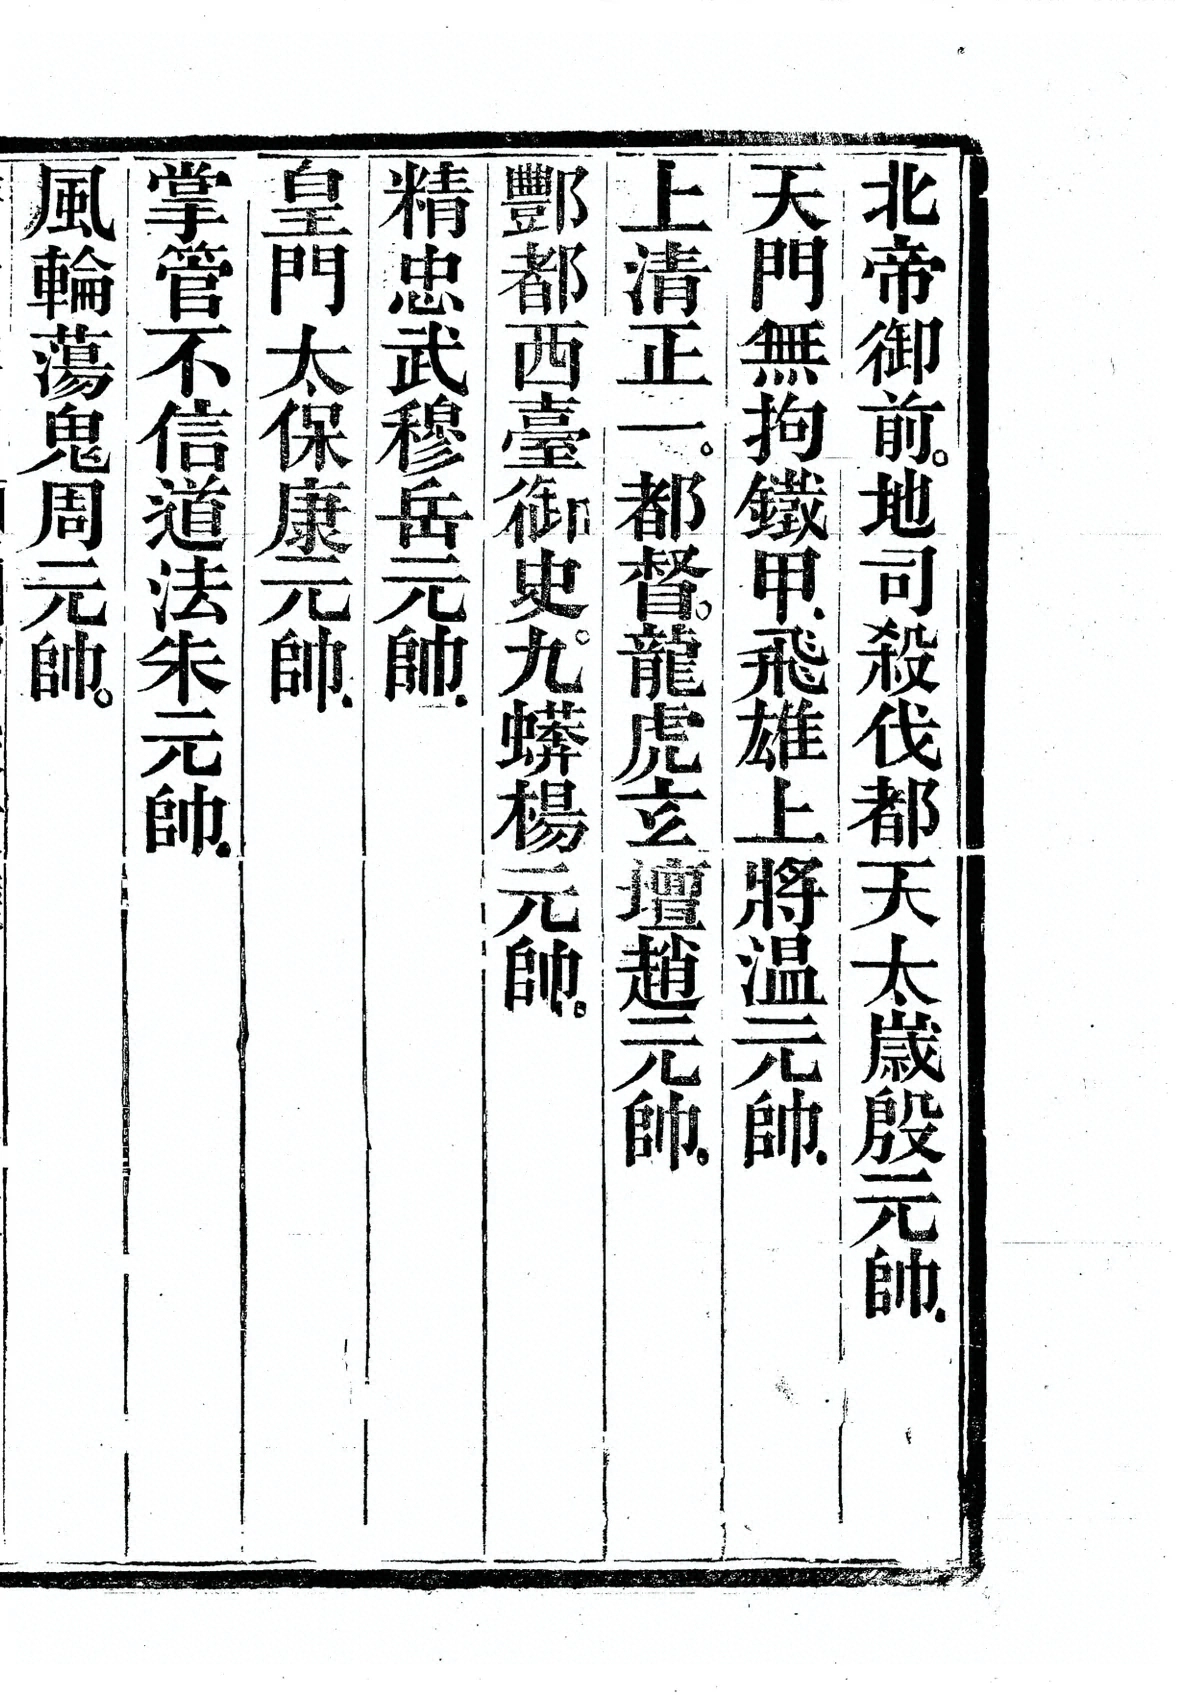 北帝御前。地司殺伐都天太歲殷元帥.
天門無拘鐵甲.飛雄上將溫元帥.
上清正一。都督。龍虎玄壇趙元帥。
酆都西臺御史。九蟒楊元帥。
精忠武穆岳元帥.
皇門太保康元帥.
掌管不信道法朱元帥.
風輪蕩鬼周元帥。